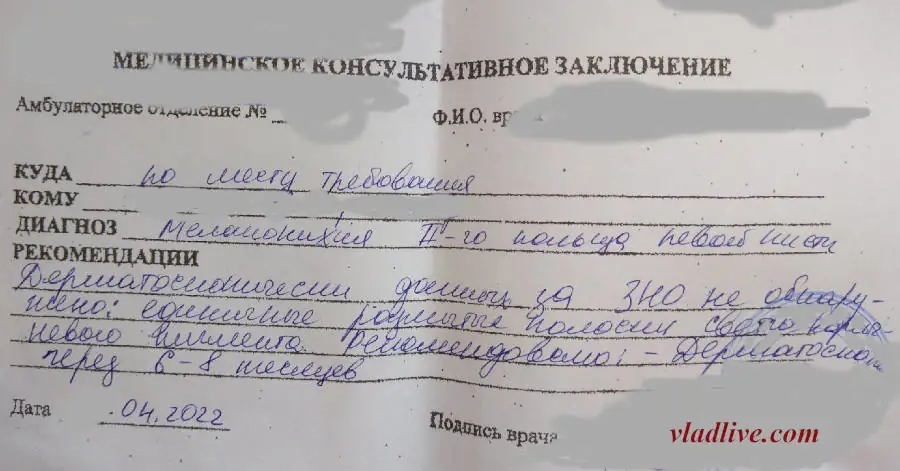 МЕДИЦИНСКОЕ КОНСУЛЬТАТИВНОЕ ЗАКЛЮЧЕНИЕ
Амбулаторное отделение №
Ф.И.О.
КУДА по месту требования
КОМУ
ДИАГНОЗ Меланонихия II-го пальца левой кисти
РЕКОМЕНДАЦИИ
Дерматоскопически данных за ЗНО не обнару-
жено: единичные размытые полоски светло корич-
невого пигмента. Рекомендовано: - Дерматоскопия
через 6-8 месяцев
Дата .04.2022
Подпись врача
vladlive.com